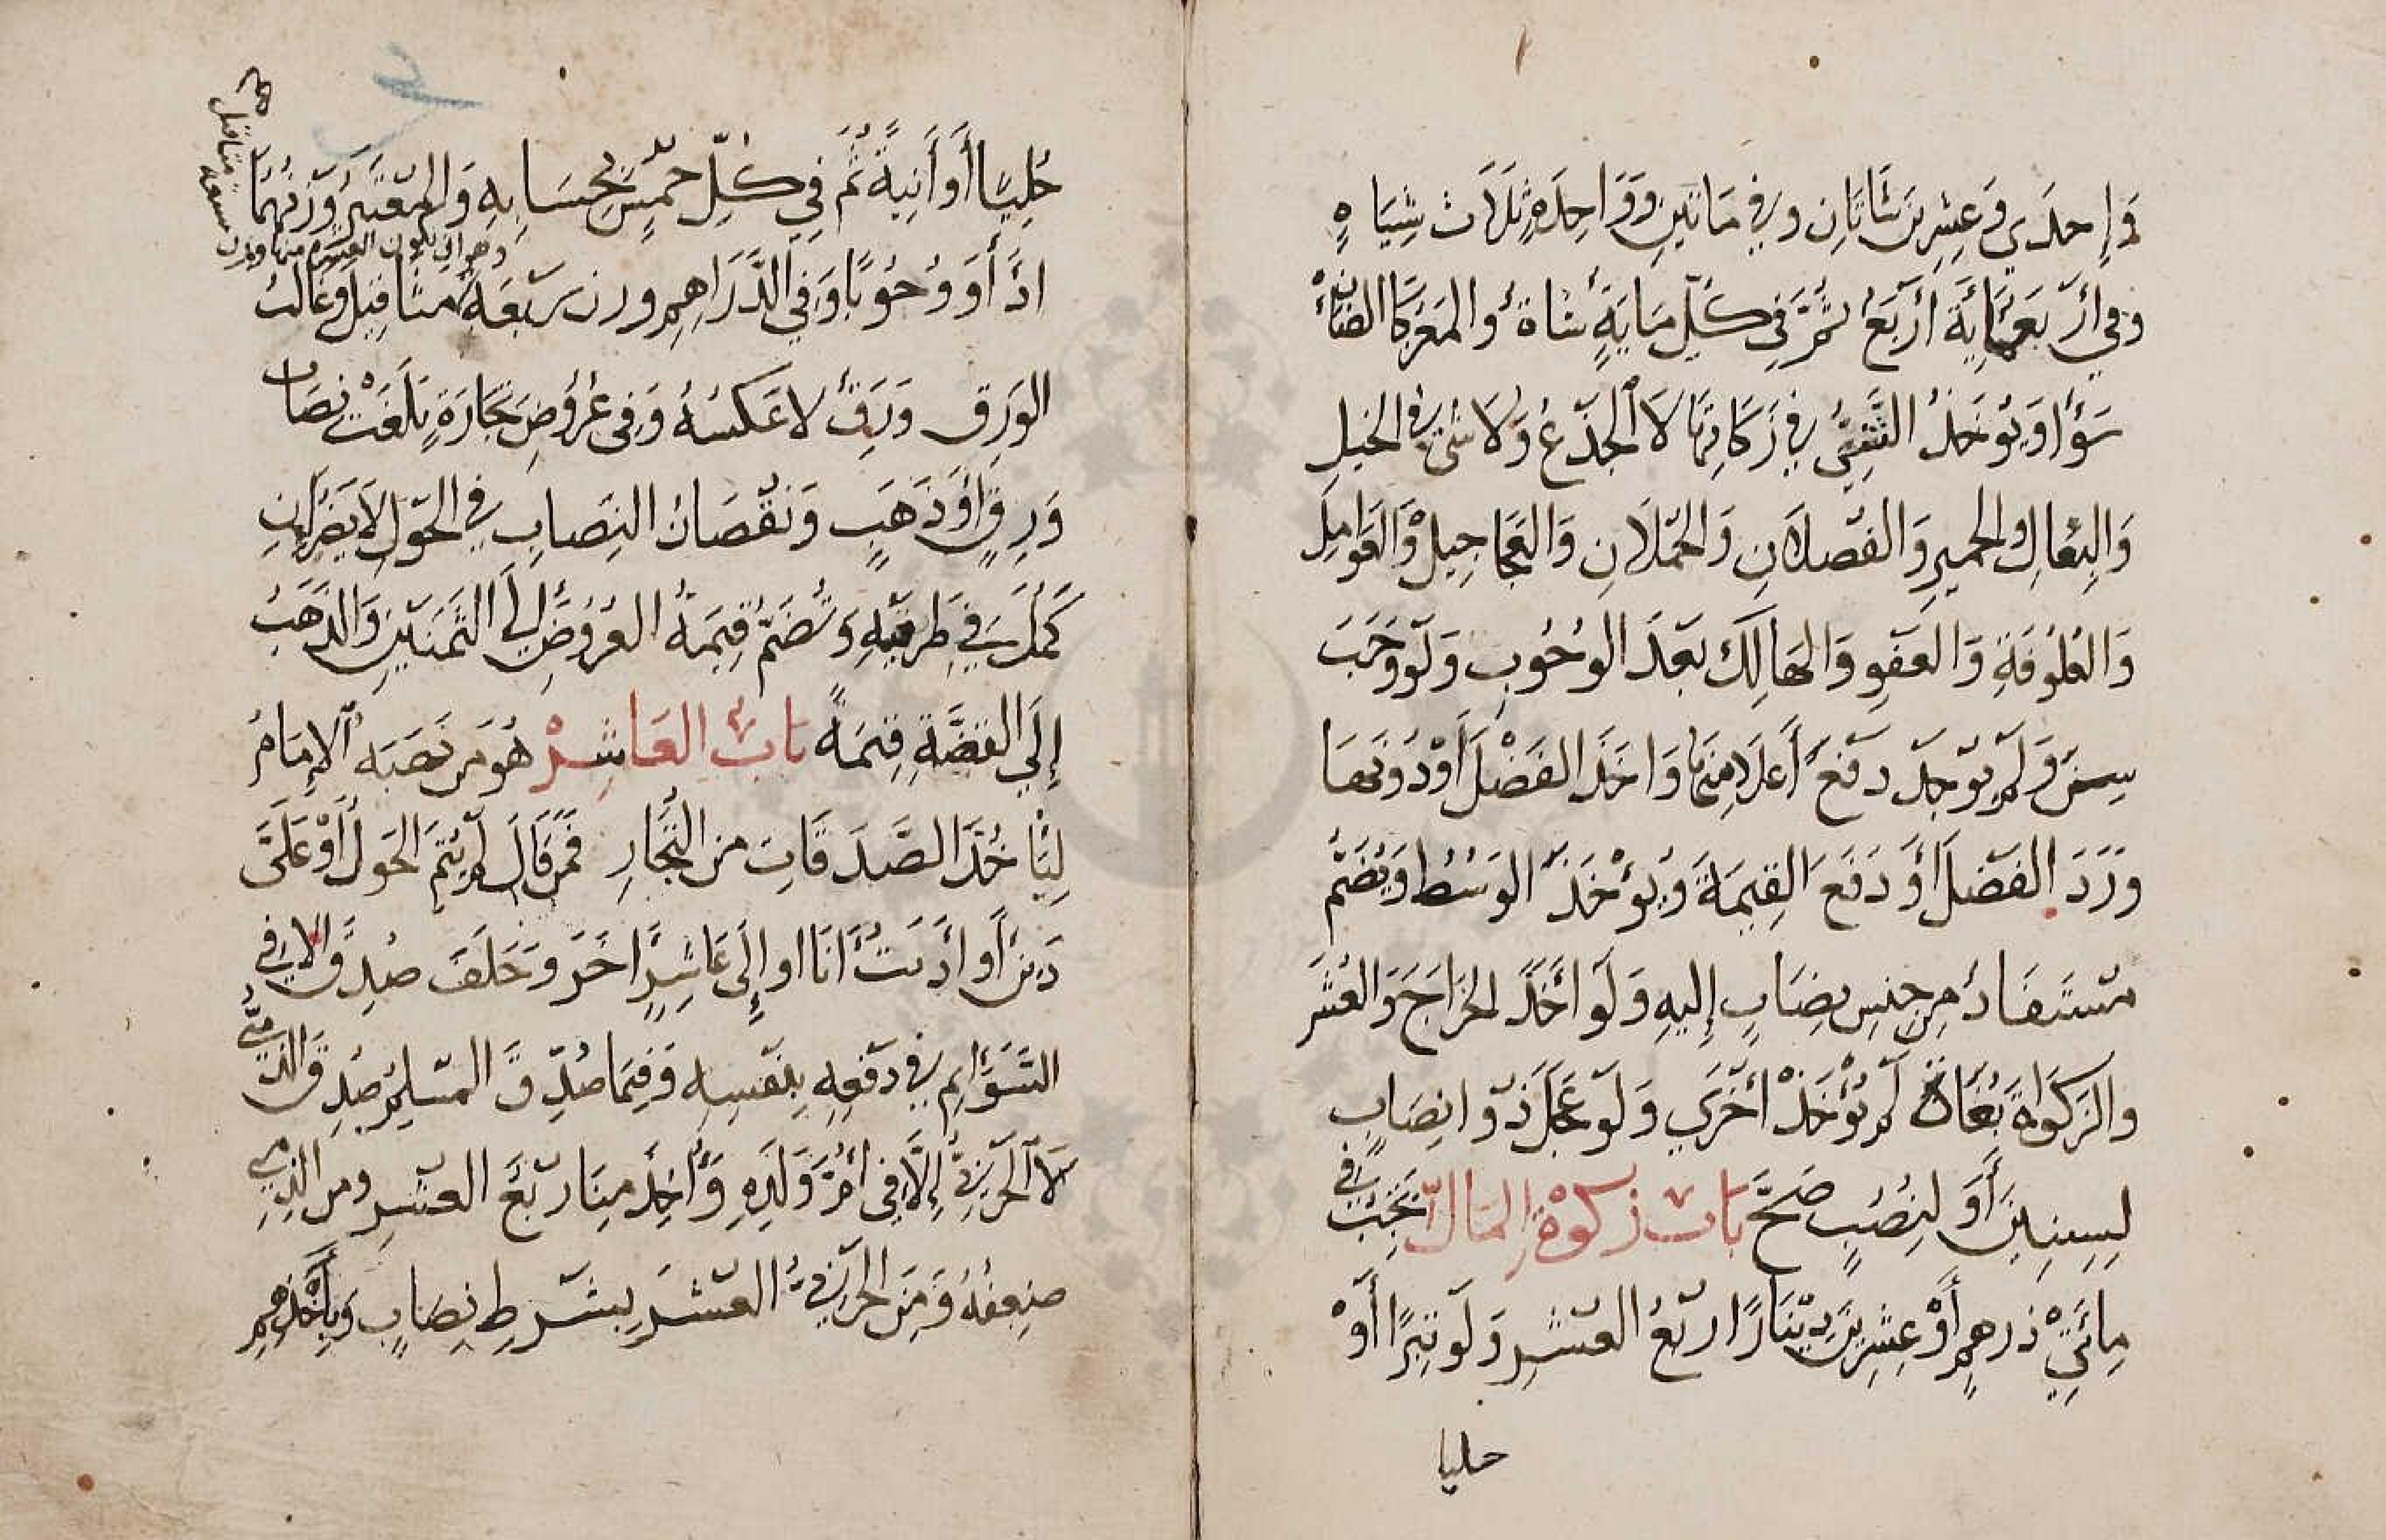 وَإِحدَي وَعِشرِينَ شَاتَانِ وفي مَاتَينِ وَوَاحِدَةٍ ثَلَاث شِيَاهٍ
وفي أَربَعمَايَة أَربَعُ ثُمَّ فِي كلِّ مَايَةٍ شاة وَالمَعَزُ كالضَّأنِ
سَوَآ وَيُوخَذُ الثَّنِيُّ في زَكَاتِهَا لَا الجَذَعُ وَلَا شَيَ في الخيلِ
وَالبِغَالِ والحميرِ وَالفُصلَانِ وَالحُملَانِ وَالعَجَاجِيلِ وَالعَوَامِلِ
وَالعَلُوفَةِ وَالعَفوِ وَالهَالِكِ بَعدَ الوُجُوبِ وَلَو وَجَبَ
سِنٌ وَلَم يُوجَد دَفَعَ أَعلَا مِنهَا وَاخَذَ الفَضْلَ أَوْ دُونَهَا
وَرَدَ الفَضلَ أَو دَفَعَ القِيمَةَ وَيُؤْخَذُ الوَسُط وَيُضَمُّ
مُستَفَادٌ مِن جِنسِ نِصَابٍ إِليهِ وَلَو أَخَذَ الخَرَاجَ وَالعُشرَ
والزكَواةَ بُغَاة لم تُؤْخَذْ أخرَي وَلَو عَجَّلَ ذو انِصَابٍ
لِسِنِينَ أَو لِنُصُبٍ صَحَّ بَاب زكوةِ المَالِ تَجِبُ في
مِائَتَيْ درهمٍ أَوْ عِشرِينَ دِينَارًا ربعُ العُشرِ وَلَو تِبرًا أَوْ
حليا
حُلِيًا أَو أَنِيةً ثُمَّ فِي كلِّ خمسٍ بِحِسَابِهِ وَالمعتَبَرُ وَزنُهُمَا
ادَآً وَوُجُوبًا وَفِي الدَّرَاهِمِ وزن سَبعَةِ مثَاقِيلَ وَغَالبُ
الوَرِق وَرِقٌ لا عَكسُهُ وَفي عُرُوضِ تجَارَةٍ بَلَغَتْ نِصَاب
وَرِقٍ أَو ذَهَبٍ وَنقصَانُ النِصابِ في الحَولِ لَا يَضُرُّ إِن
كَمُلَ في طرفَيهِ وَتُضَمُّ قِيمَةُ العُرُوضِ إِلَي الثَّمَنَينِ وَالذَهَبُ
إِلَي الفِضَّةِ قِيمَةً بَابُ العَاشِرْ هُوَ مَن نَصَبَهُ الإِمَامُ
لِيَاخُذَ الصَّدَقَاتِ من التُّجَّارِ فَمَن قَالَ لم يَتِمَّ الحَولُ أَوْ عَلَيَّ
دَينٌ أَو ادَّيتُ أَنَا او إِلَى عَاشِرٍ اخَرَ وَحَلَفَ صُدِّقَ الا في
السَّوَايِمِ في دَفعِهِ بِنَفسِهِ وَفِيمَا صُدِّقَ المسلِمُ صُدِّقَ الذِّمِّيُّ
لَا الحَربيُّ إِلَّا في أُمِّ وَلَدِهِ وَأُخِذَ مِنَا ربعُ العُشرِ ومن الذِّمِّي
ضِعفُهُ وَمِنَ الحَربيِّ العُشرُ بِشَرطِ نِصَابٍ وَبِأَخْذِهِم
وهو ان تكون العشرة منها وزن سبعة مثاقيل